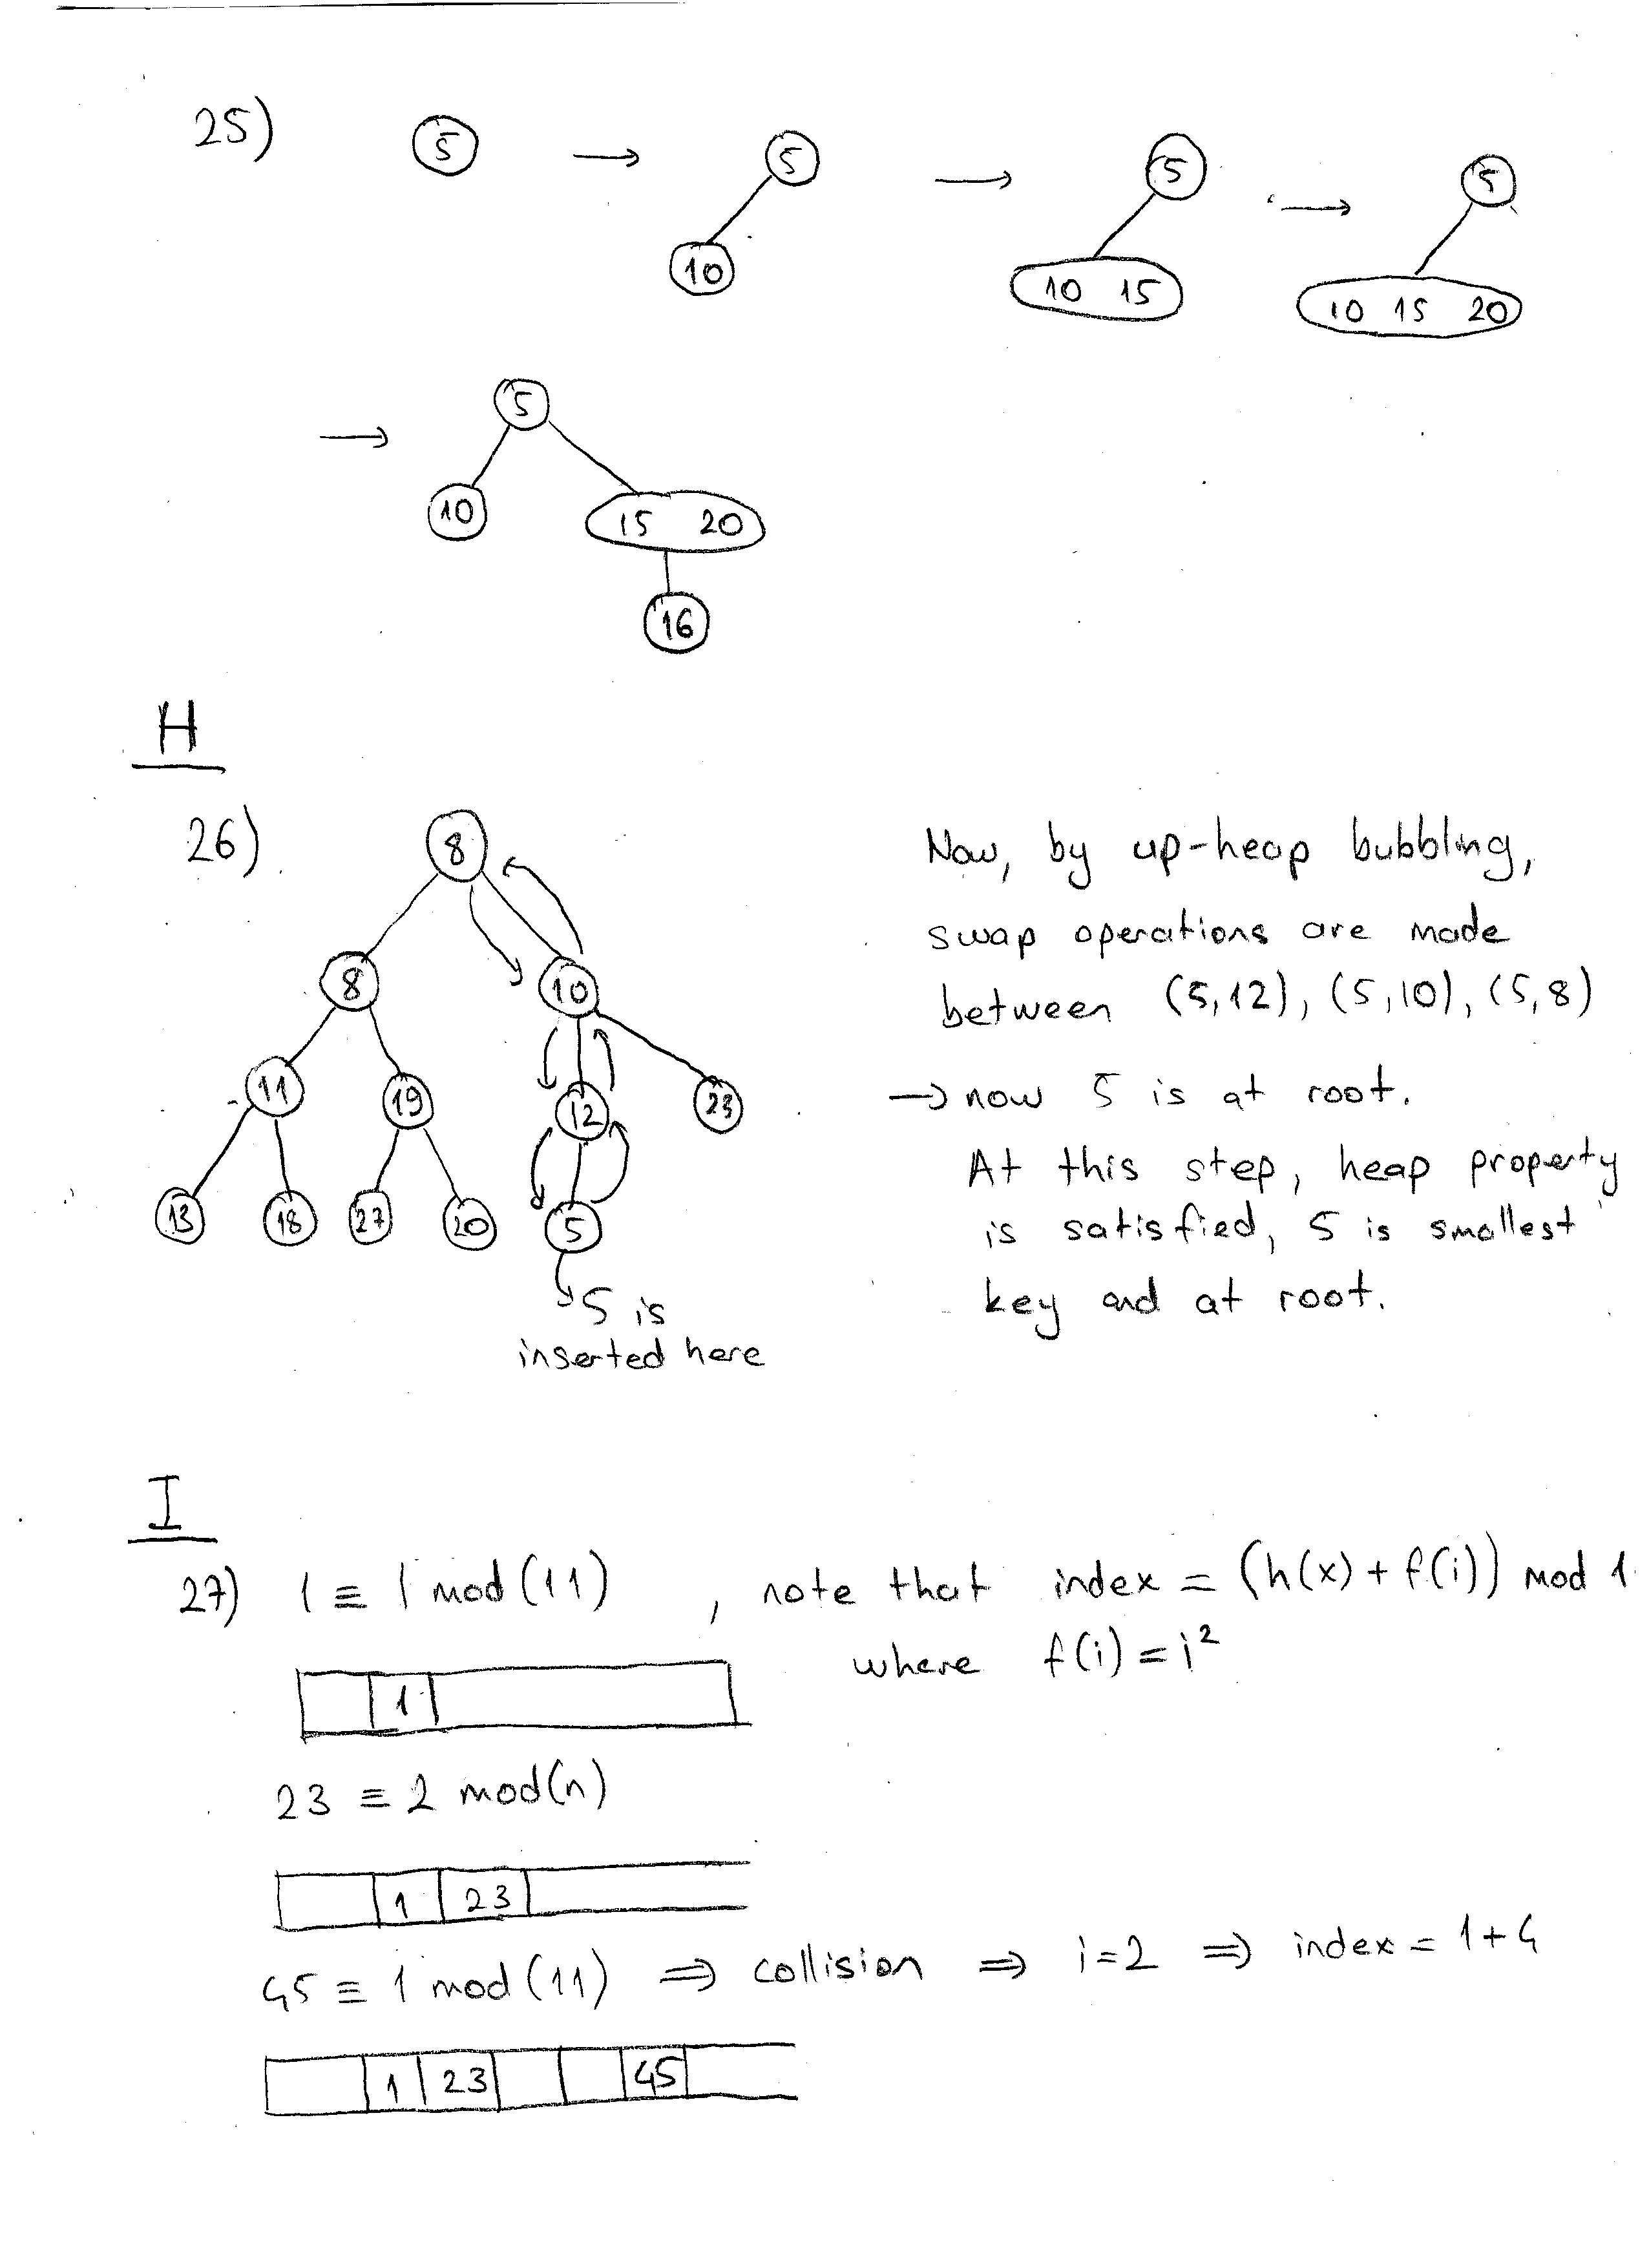 25)
5 → 5 → 5 → 5
10
10 15
10 15 20
→ 5
10 15 20
16
H
26)
8
8 10
11 19 12 23
13 18 27 20 5
5 is
inserted here
Now, by up-heap bubbling,
swap operations are made
between (5,12), (5,10), (5,8)
→ now 5 is at root.
At this step, heap property
is satisfied, 5 is smallest
key and at root.
I
27) 1 ≡ 1 mod (11) , note that index = (h(x) + f(i)) mod 1
where f(i) = i²
1
23 ≡ 2 mod(n)
1 23
45 ≡ 1 mod (11) ⇒ collision ⇒ i=2 ⇒ index = 1+4
1 23 45